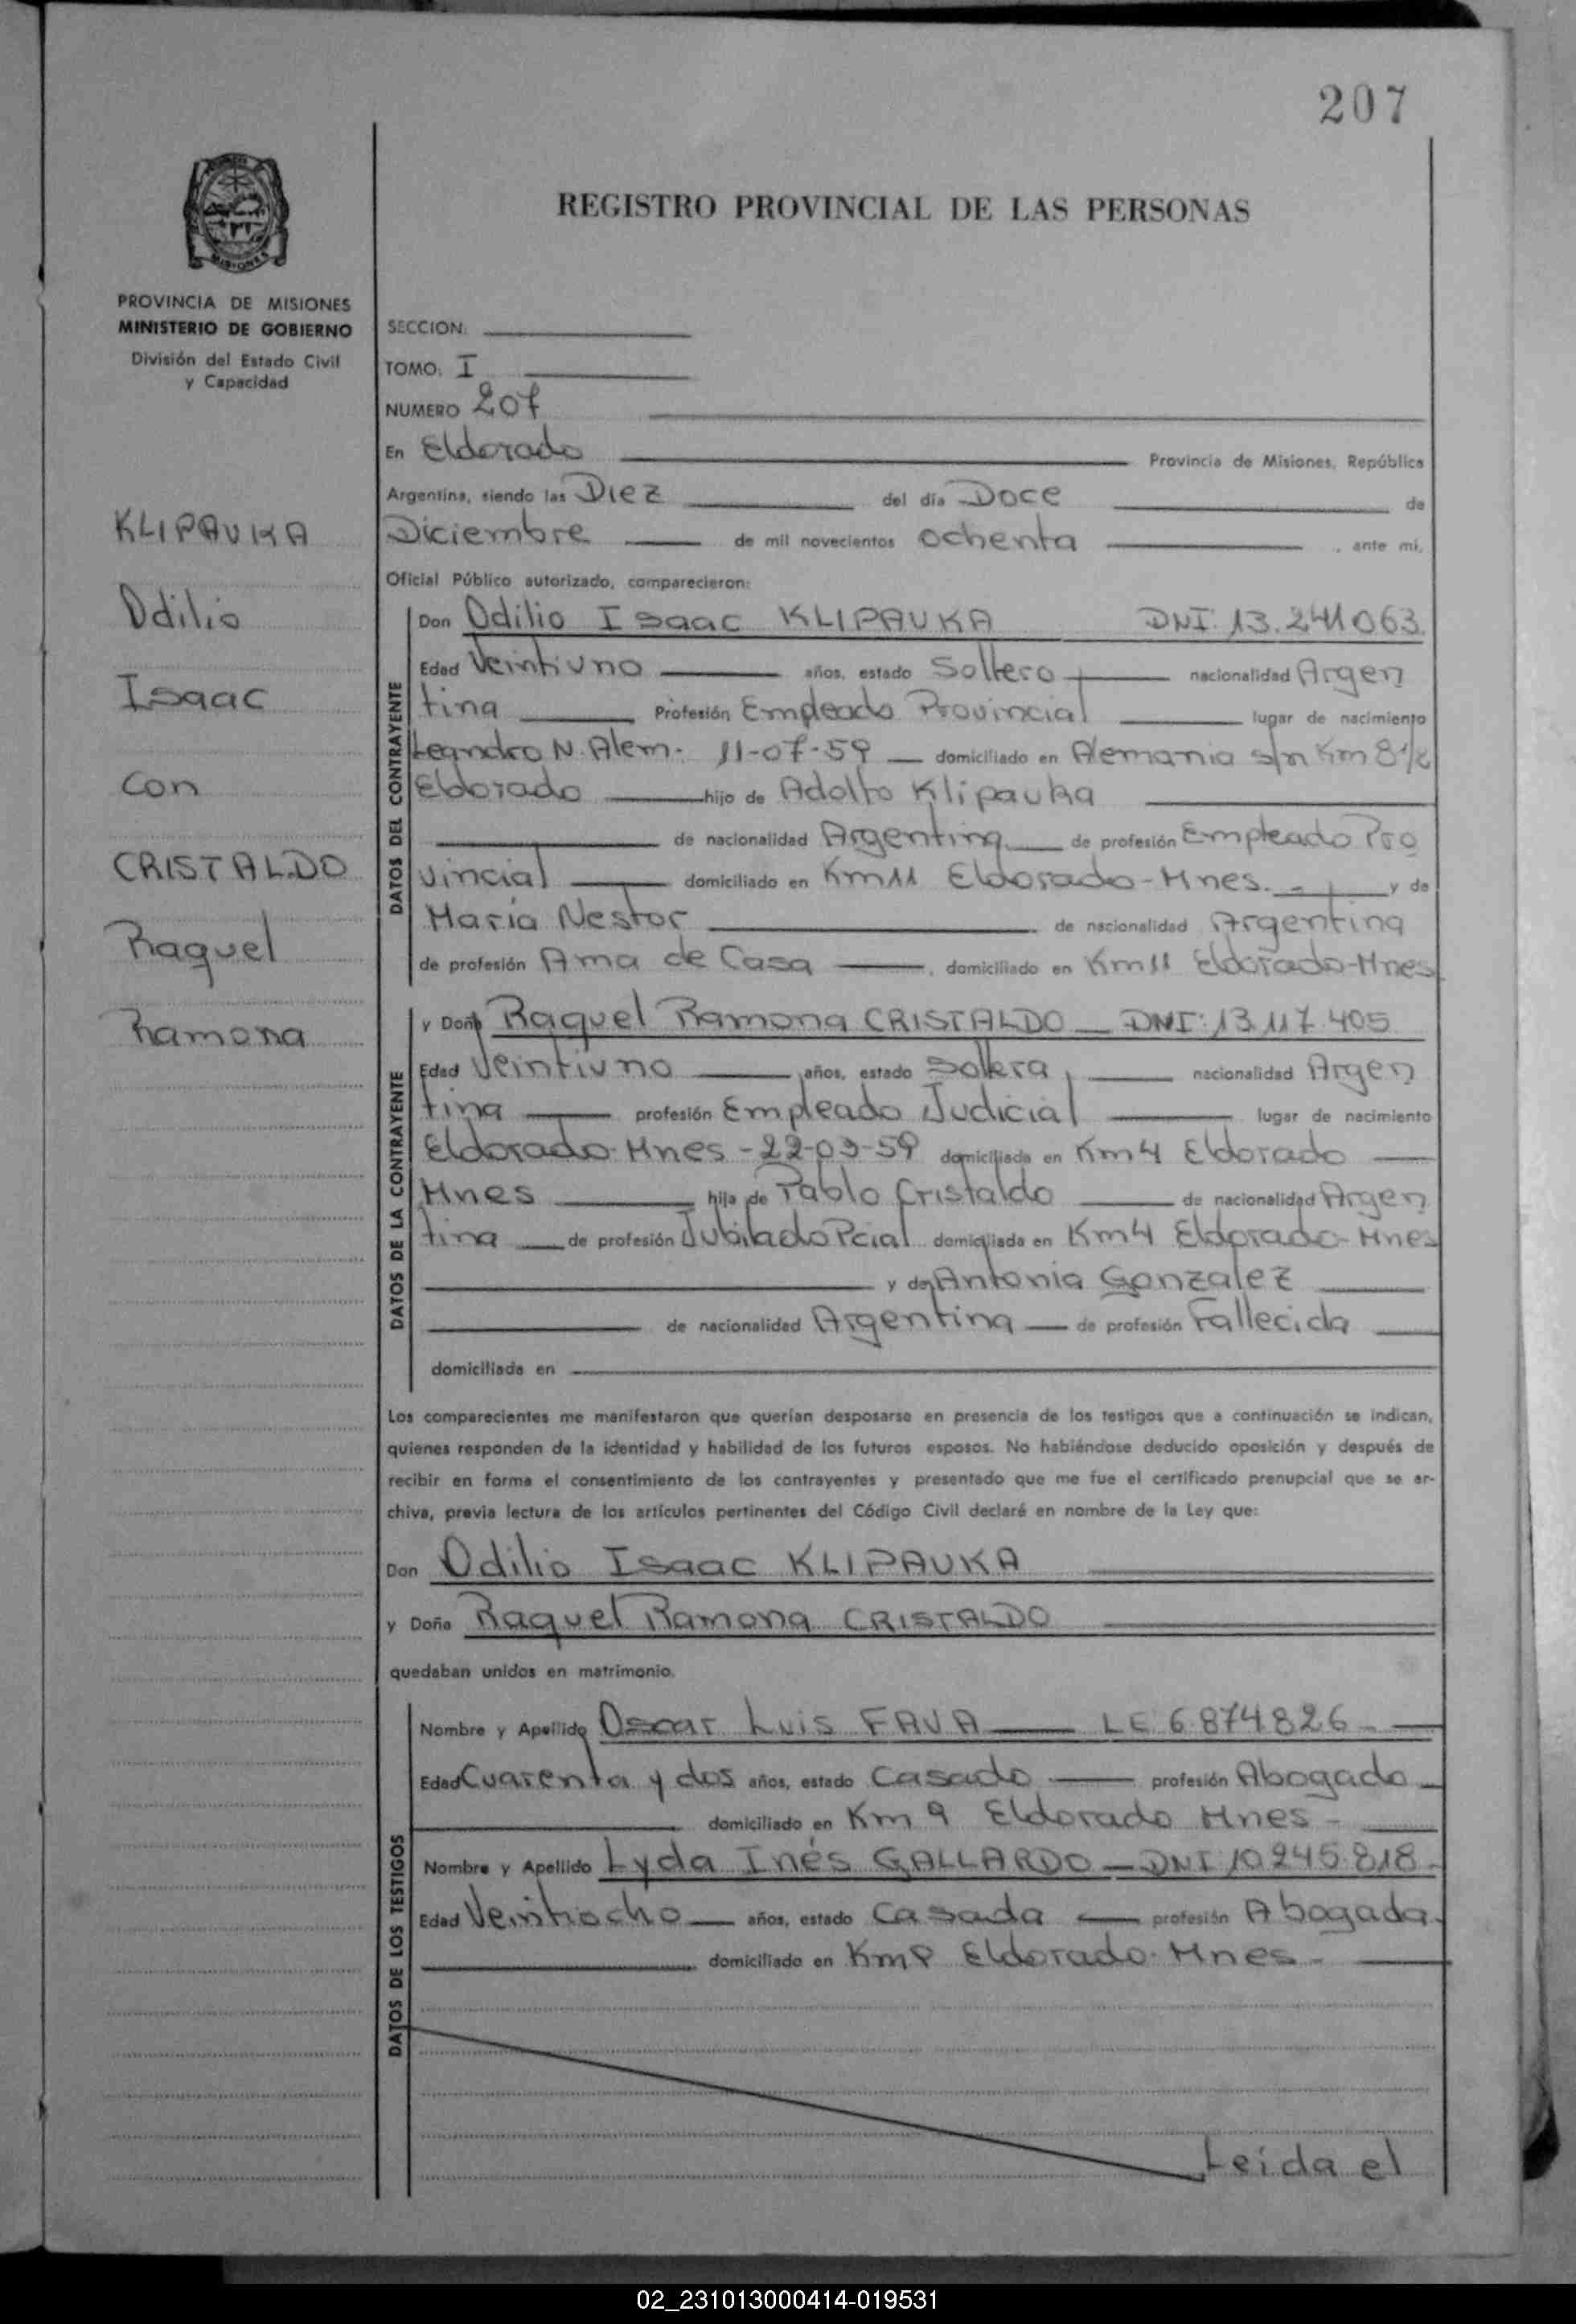 207
REGISTRO PROVINCIAL DE LAS PERSONAS
MISIONES
PROVINCIA DE MISIONES
MINISTERIO DE GOBIERNO
División del Estado Civil
y Capacidad
KLIPAUKA
Odilio
Isaac
con
CRISTALDO
Raquel
Ramona
SECCION:
TOMO: I
NUMERO 207
En Eldorado Provincia de Misiones, República
Argentina, siendo las Diez del día Doce de
Diciembre de mil novecientos ochenta , ante mí,
Oficial Público autorizado, comparecieron:
DATOS DEL CONTRAYENTE
Don Odilio Isaac KLIPAUKA DNI: 13.241063.
Edad Veintiuno años, estado Soltero nacionalidad Argen
tina Profesión Empleado Provincial lugar de nacimiento
Leandro N. Alem- 11-07-59 domiciliado en Alemania s/n Km 8 1/2
Eldorado hijo de Adolfo Klipauka
de nacionalidad Argentina de profesión Empleado Pro
vincial domiciliado en Km11 Eldorado-Mnes.- y de
María Nestor de nacionalidad Argentina
de profesión Ama de Casa , domiciliado en Km11 Eldorado-Mnes
DATOS DE LA CONTRAYENTE
y Doña Raquel Ramona CRISTALDO DNI: 13.117.405
Edad Veintiuno años, estado Soltera , nacionalidad Argen
tina profesión Empleado Judicial lugar de nacimiento
Eldorado-Mnes - 22-03-59 domiciliada en Km4 Eldorado
Mnes hija de Pablo Cristaldo de nacionalidad Argen
tina de profesión Jubilado Pcial domiciliada en Km4 Eldorado-Mnes
y de Antonia Gonzalez
de nacionalidad Argentina de profesión Fallecida
domiciliada en
Los comparecientes me manifestaron que querían desposarse en presencia de los testigos que a continuación se indican,
quienes responden de la identidad y habilidad de los futuros esposos. No habiéndose deducido oposición y después de
recibir en forma el consentimiento de los contrayentes y presentado que me fue el certificado prenupcial que se ar-
chiva, previa lectura de los artículos pertinentes del Código Civil declaré en nombre de la Ley que:
Don Odilio Isaac KLIPAUKA
y Doña Raquel Ramona CRISTALDO
quedaban unidos en matrimonio.
DATOS DE LOS TESTIGOS
Nombre y Apellido Oscar Luis FAVA LE 6.874.826-
Edad Cuarenta y dos años, estado Casado profesión Abogado
domiciliado en Km 9 Eldorado Mnes -
Nombre y Apellido Lyda Inés GALLARDO DNI 10.245.818-
Edad Veintiocho años, estado Casada profesión Abogada.
domiciliado en Km9 Eldorado-Mnes -
Leída el
02_231013000414-019531